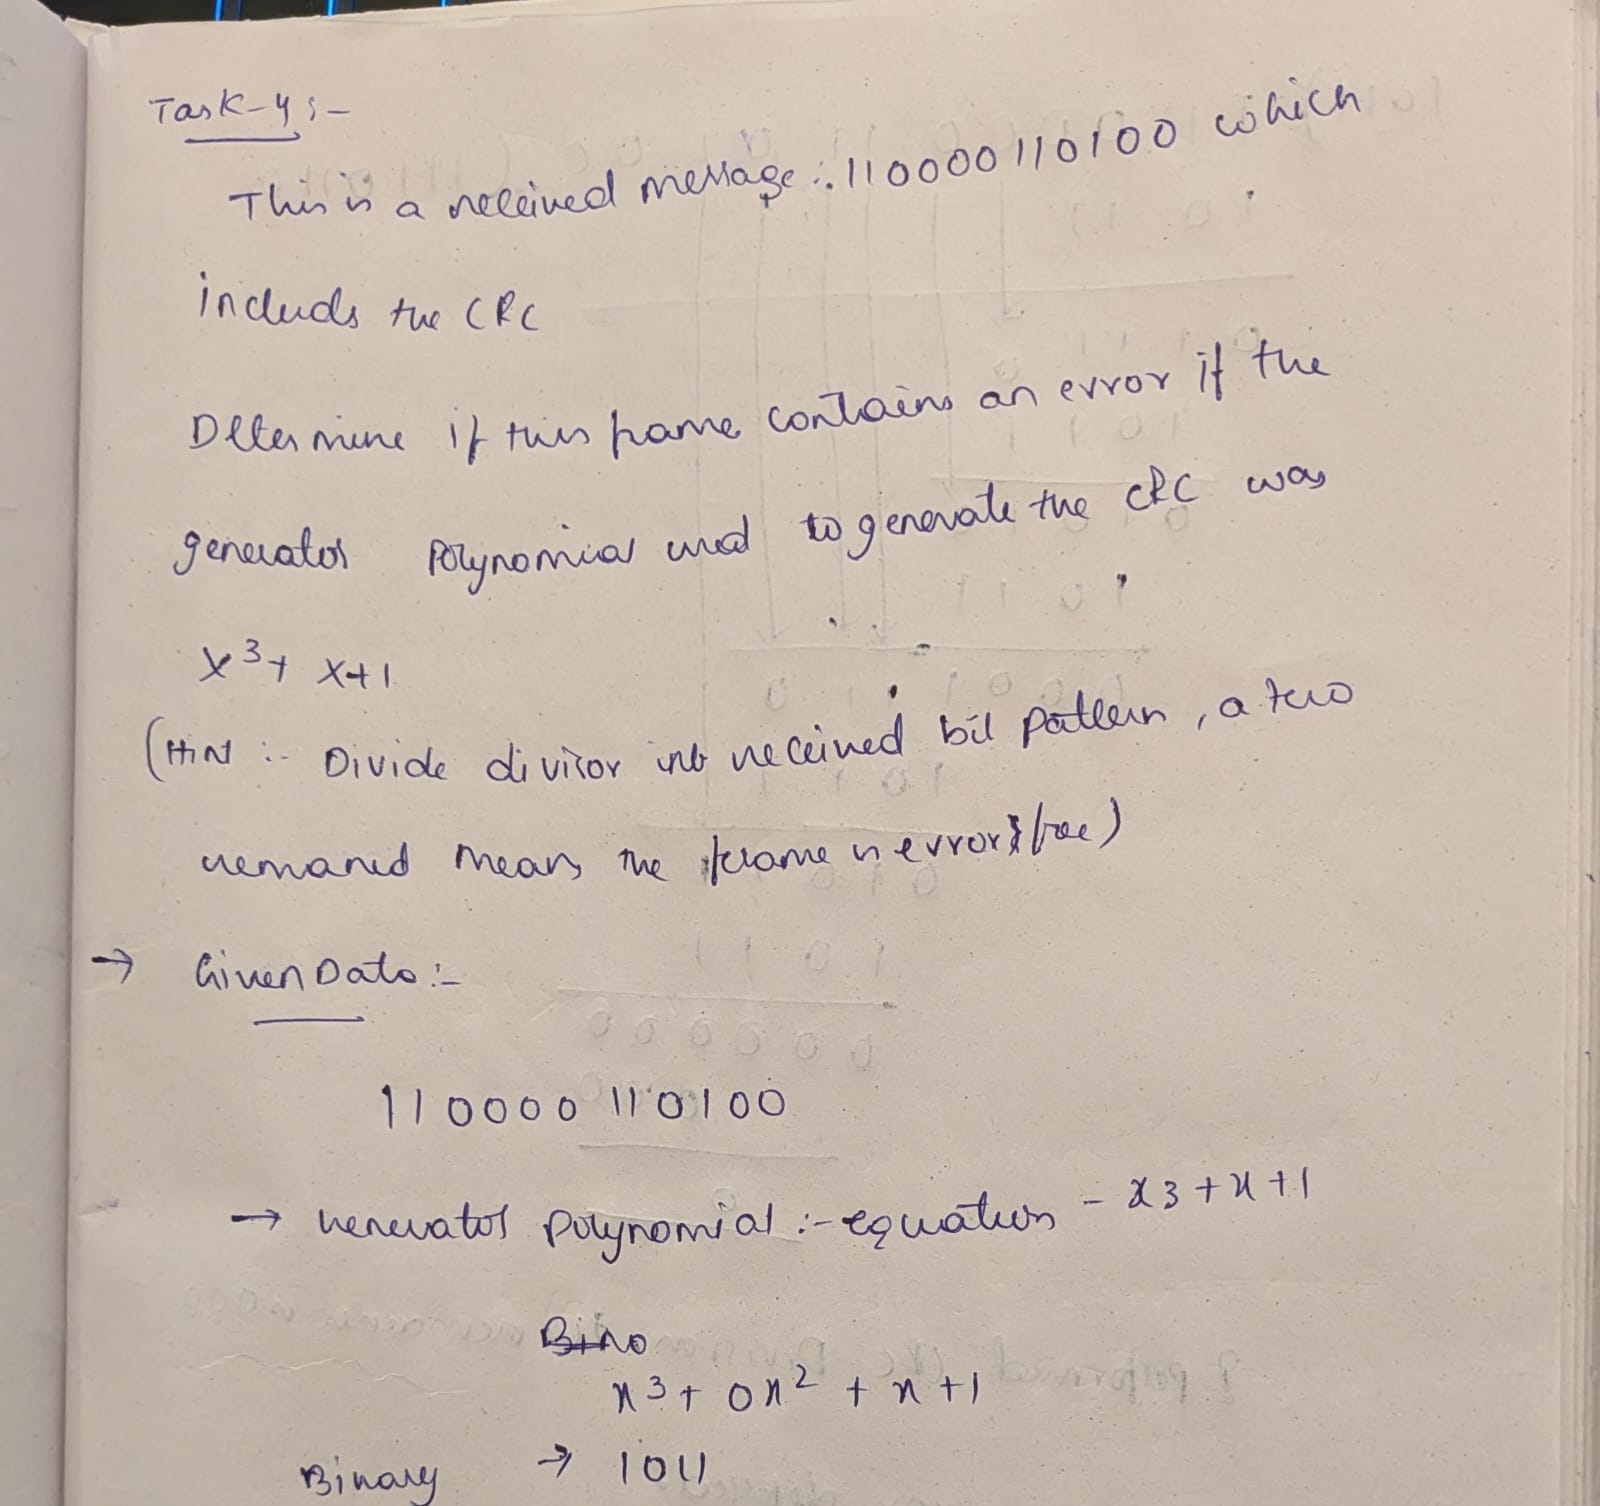 Task-4:-
This is a received message:. 110000110100 which
includs the CRC
Determine if this frame contains an error if the
generator polynomial used to generate the CRC was
x³+ x+1
(HiNt :- Divide divisor into received bit pattern, a zero
remaned means the frame is error free)
→ Given Data:-
110000110100
→ Generator polynomial :- equation - x3+x+1
Bino
x³+ 0x² + x +1
Binary → 1011